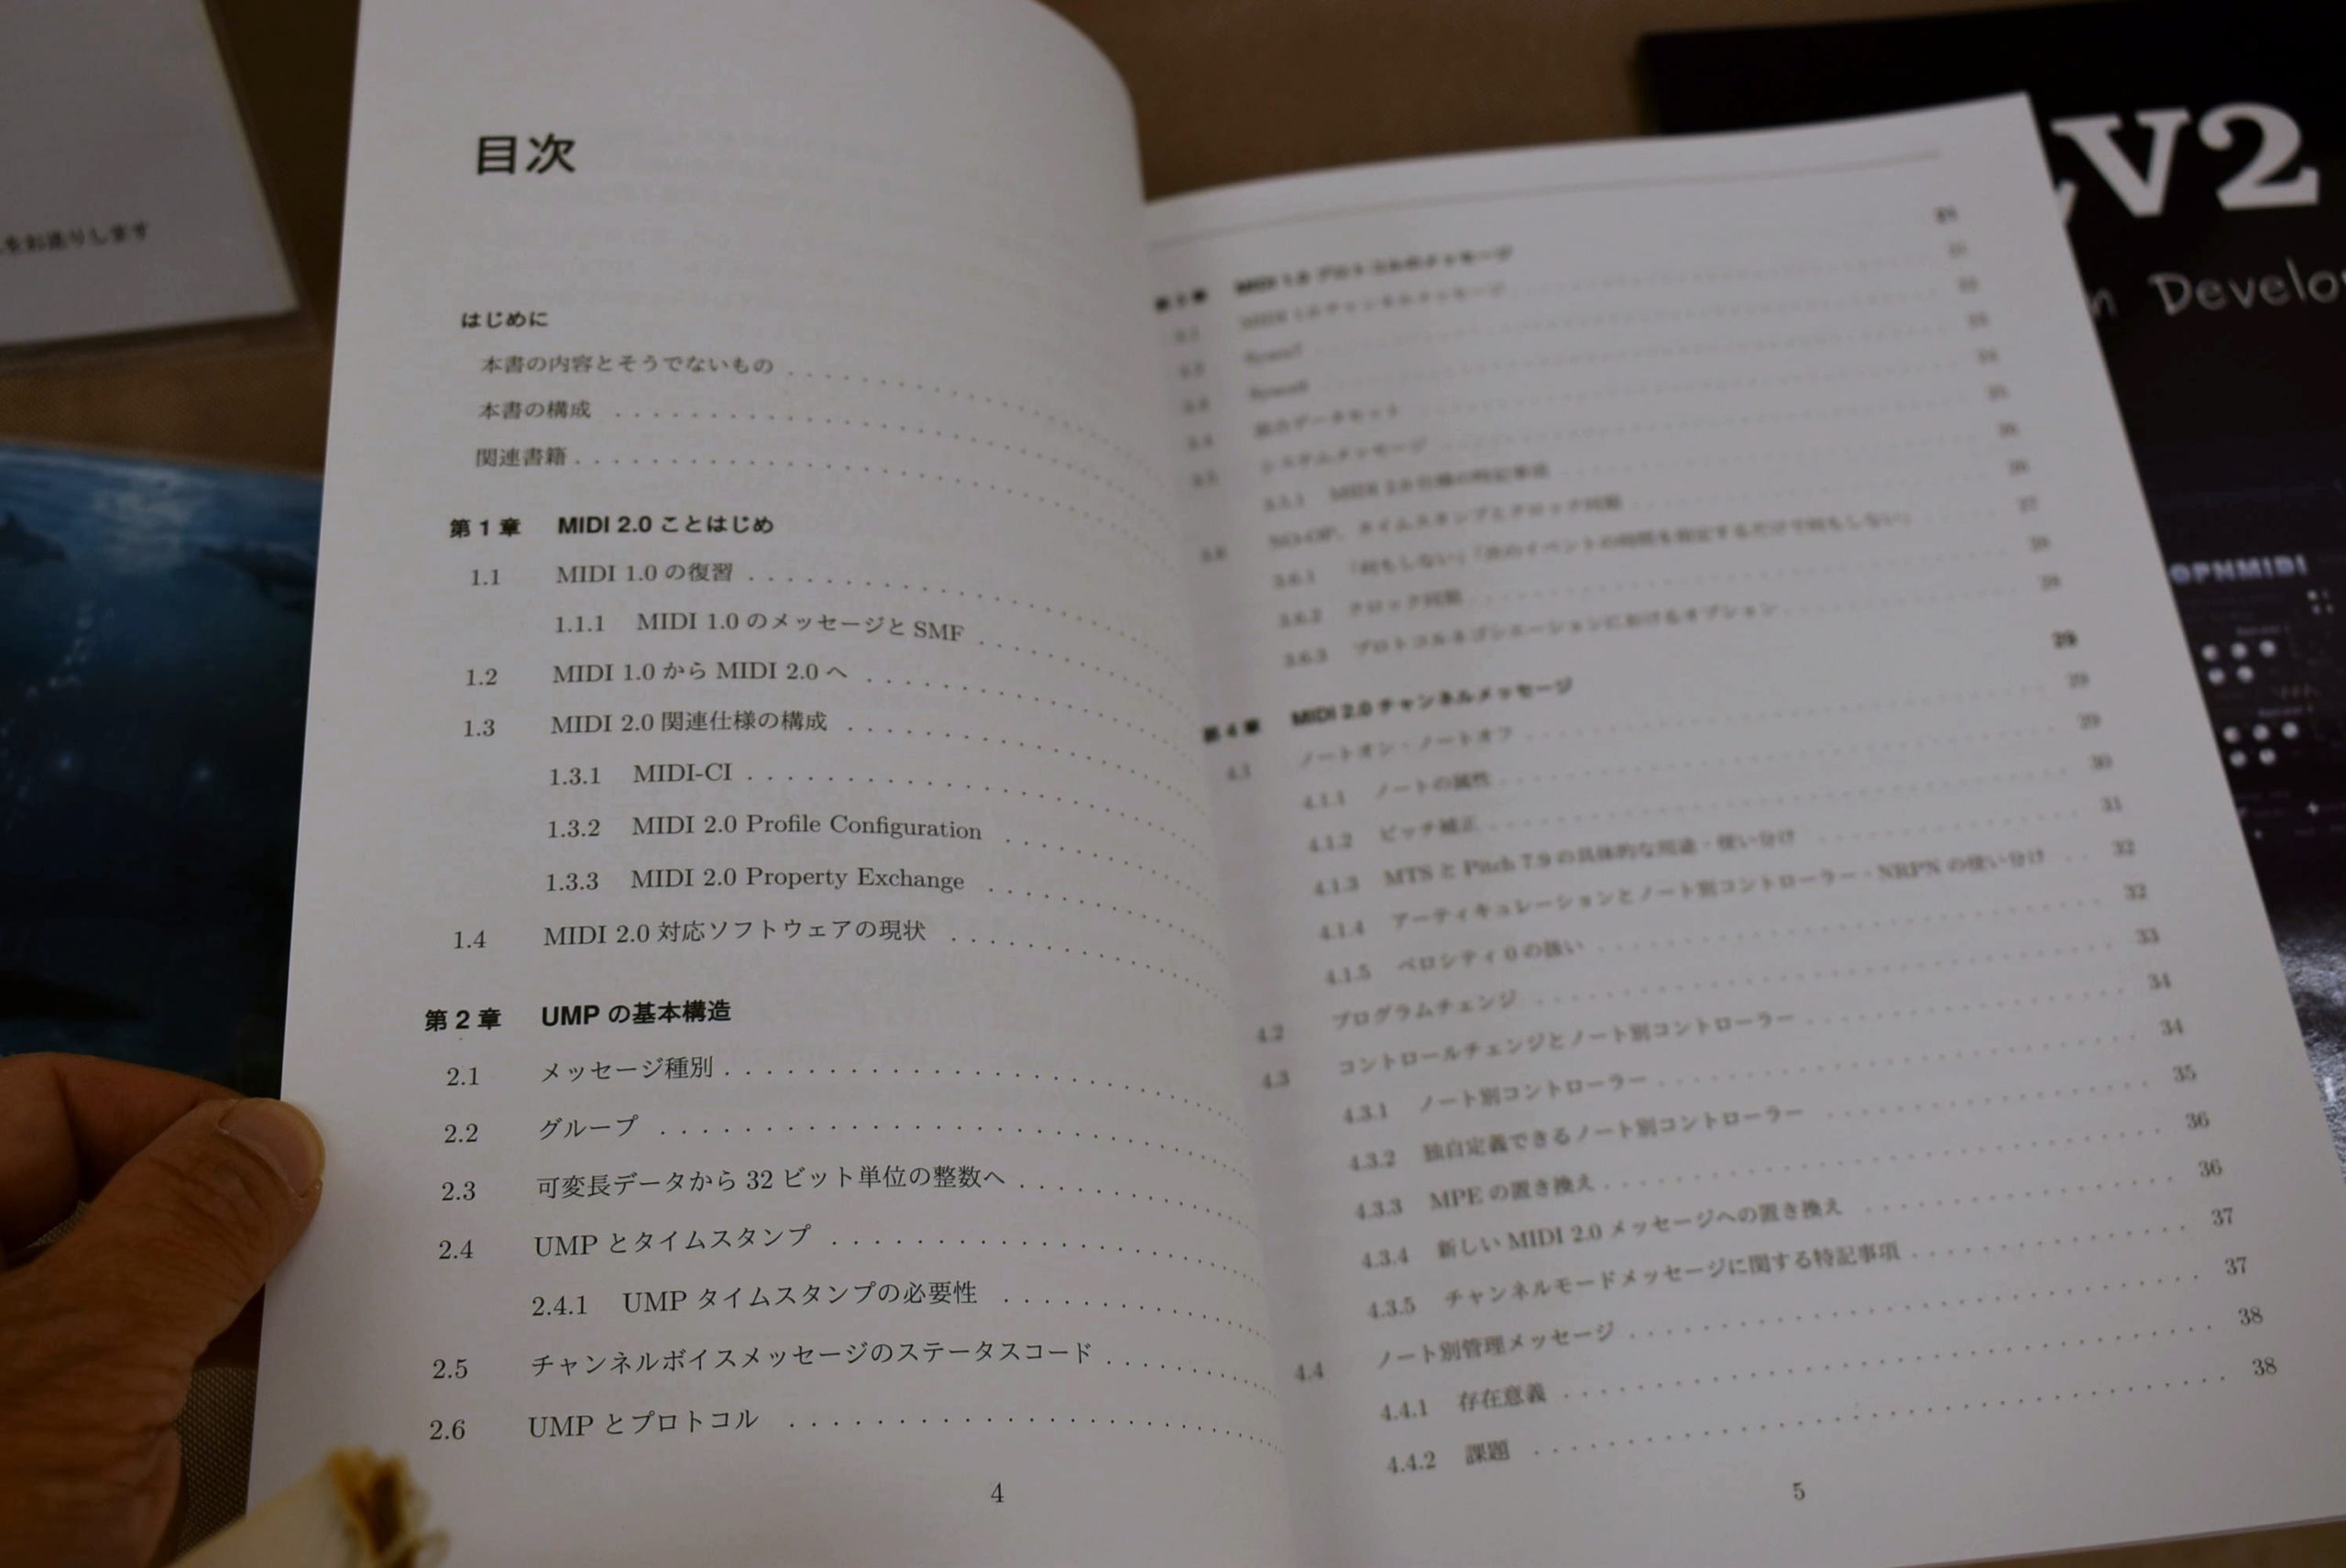 をお送りします
目次
はじめに
本書の内容とそうでないもの
本書の構成
関連書籍
第1章 MIDI 2.0 ことはじめ
1.1 MIDI 1.0 の復習
1.1.1 MIDI 1.0 のメッセージと SMF
1.2 MIDI 1.0 から MIDI 2.0 へ
1.3 MIDI 2.0 関連仕様の構成
1.3.1 MIDI-CI
1.3.2 MIDI 2.0 Profile Configuration
1.3.3 MIDI 2.0 Property Exchange
1.4 MIDI 2.0 対応ソフトウェアの現状
第2章 UMP の基本構造
2.1 メッセージ種別
2.2 グループ
2.3 可変長データから 32 ビット単位の整数へ
2.4 UMP とタイムスタンプ
2.4.1 UMP タイムスタンプの必要性
2.5 チャンネルボイスメッセージのステータスコード
2.6 UMP とプロトコル
4
第3章 MIDI 1.0 プロトコルのメッセージ 21
3.1 MIDI 1.0 チャンネルメッセージ
3.2 Sysex7
3.3 Sysex8
3.4 混合データセット
3.5 システムメッセージ
3.5.1 MIDI 2.0 仕様の特記事項
3.6 NO-OP、タイムスタンプとクロック同期
3.6.1 「何もしない」「次のイベントの時間を指定するだけで何もしない」 27
3.6.2 クロック同期 28
3.6.3 プロトコルネゴシエーションにおけるオプション 28
第4章 MIDI 2.0 チャンネルメッセージ 29
4.1 ノートオン・ノートオフ 29
4.1.1 ノートの属性 29
4.1.2 ピッチ補正 30
4.1.3 MTS と Pitch 7.9 の具体的な用途・使い分け 31
4.1.4 アーティキュレーションとノート別コントローラー・NRPN の使い分け 32
4.1.5 ベロシティ 0 の扱い 32
4.2 プログラムチェンジ 33
4.3 コントロールチェンジとノート別コントローラー 34
4.3.1 ノート別コントローラー 34
4.3.2 独自定義できるノート別コントローラー 35
4.3.3 MPE の置き換え 36
4.3.4 新しい MIDI 2.0 メッセージへの置き換え 36
4.3.5 チャンネルモードメッセージに関する特記事項 37
4.4 ノート別管理メッセージ 37
4.4.1 存在意義 38
4.4.2 課題 38
5
V2
Develo
OPNMIDI